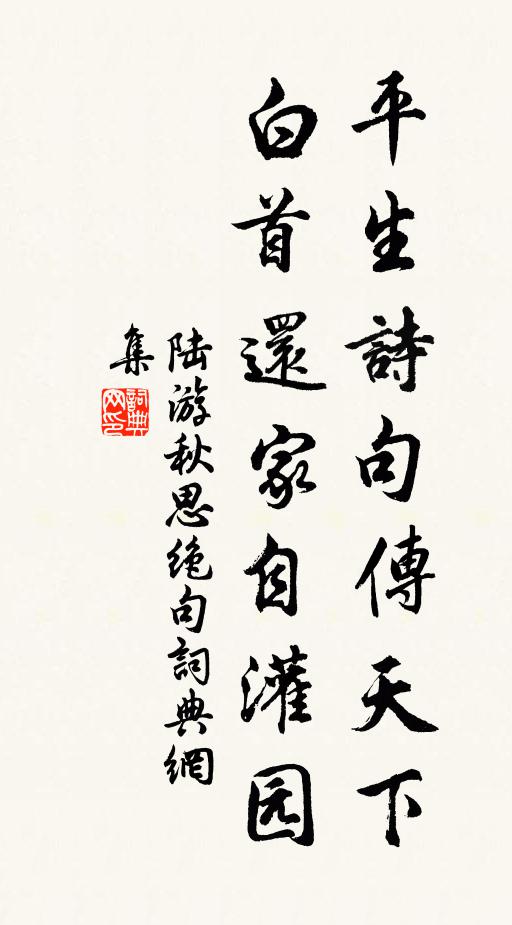 平生詩句傳天下
白首還家自灌园
陆游秋思绝句詞典網
集
詞典网印